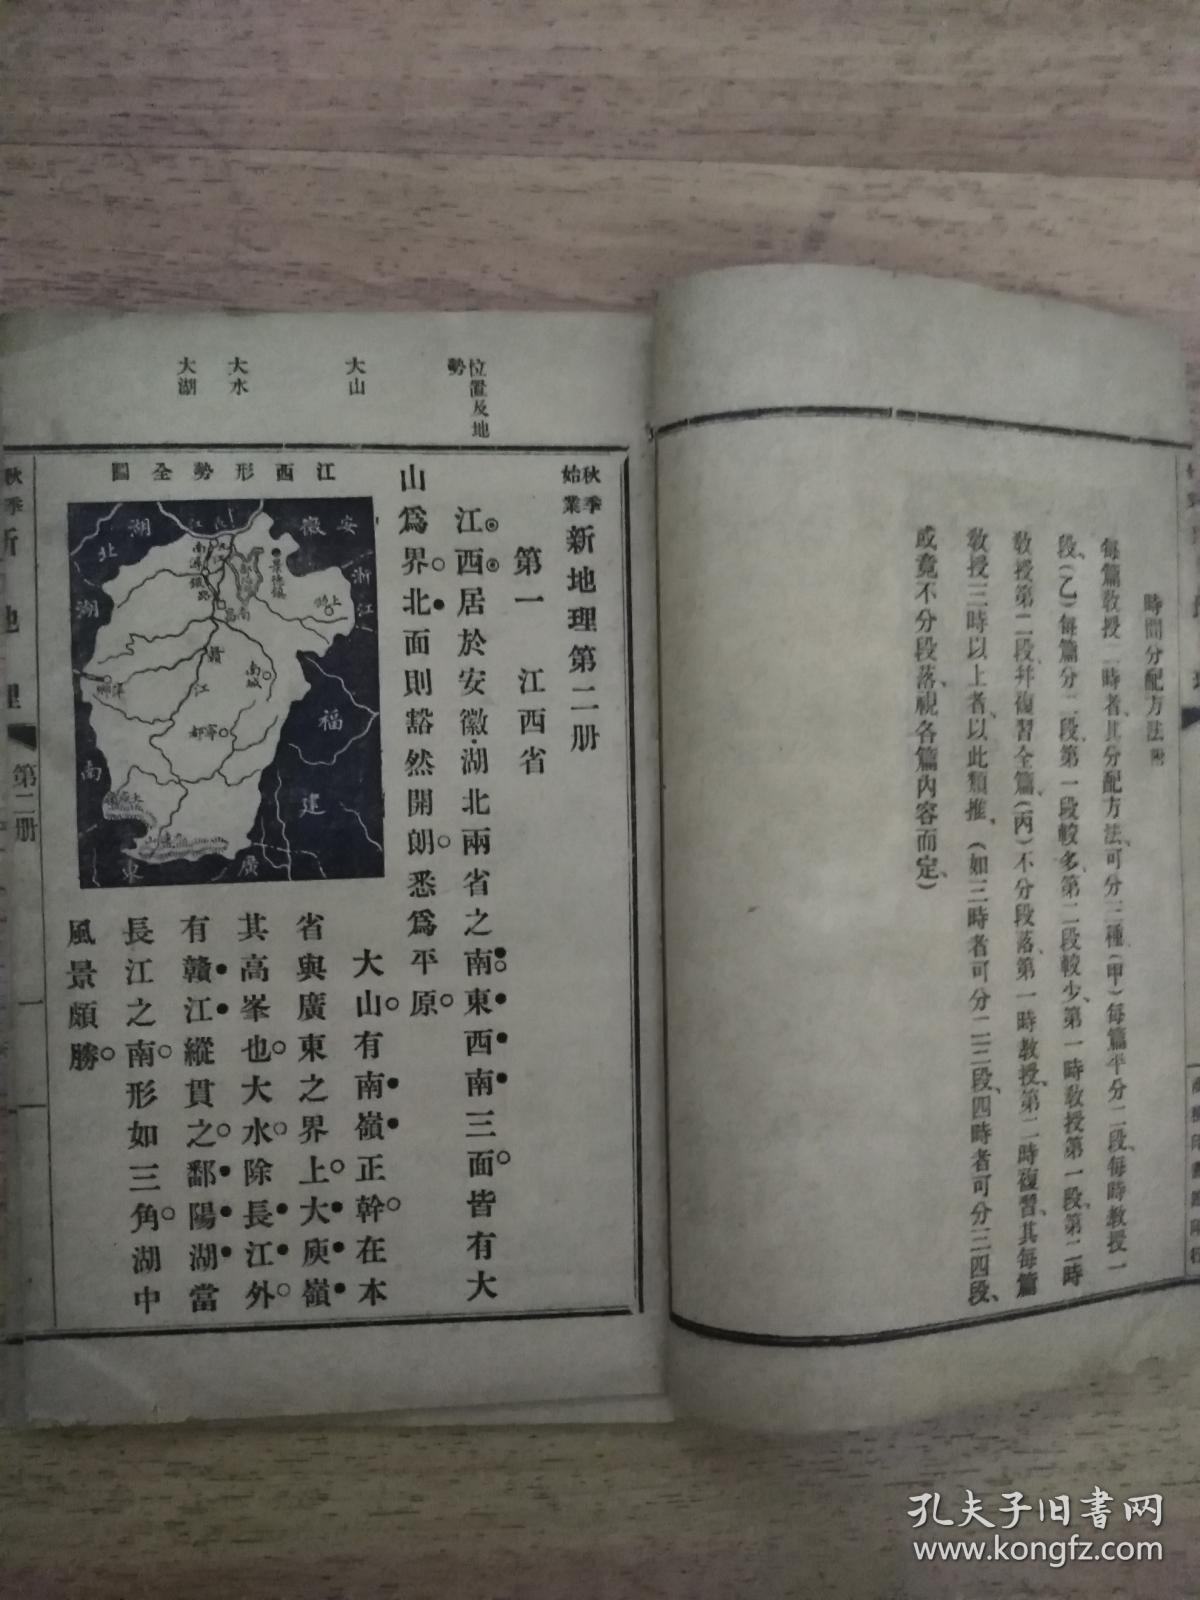 時間分配方法附
每篇教授二時者、其分配方法、可分三種、(甲)每篇平分二段、每時教授一
段、(乙)每篇分二段、第一段較多、第二段較少、第一時教授第一段、第二時
教授第二段、并復習全篇、(丙)不分段落、第一時教授、第二時復習、其每篇
教授三時以上者、以此類推、(如三時者可分二三段、四時者可分三四段、
或竟不分段落、視各篇內容而定、)
位置及地
勢
大山
大水
大湖
秋季
始業
新地理第二册
第一 江西省
江西居於安徽湖北兩省之南東西南三面皆有大
山爲界北面則豁然開朗悉爲平原
大山有南嶺正幹在本
省與廣東之界上大庾嶺
其高峯也大水除長江外
有贛江縱貫之鄱陽湖當
長江之南形如三角湖中
風景頗勝
江西形勢全圖
安徽
湖北
浙江
福建
廣東
湖南
長江
九江
南潯鐵路
景德鎮
南昌
上饒
贛江
南城
萍鄉
寧都
秋季新地理
第二册
一
孔夫子旧书网
www.kongfz.com